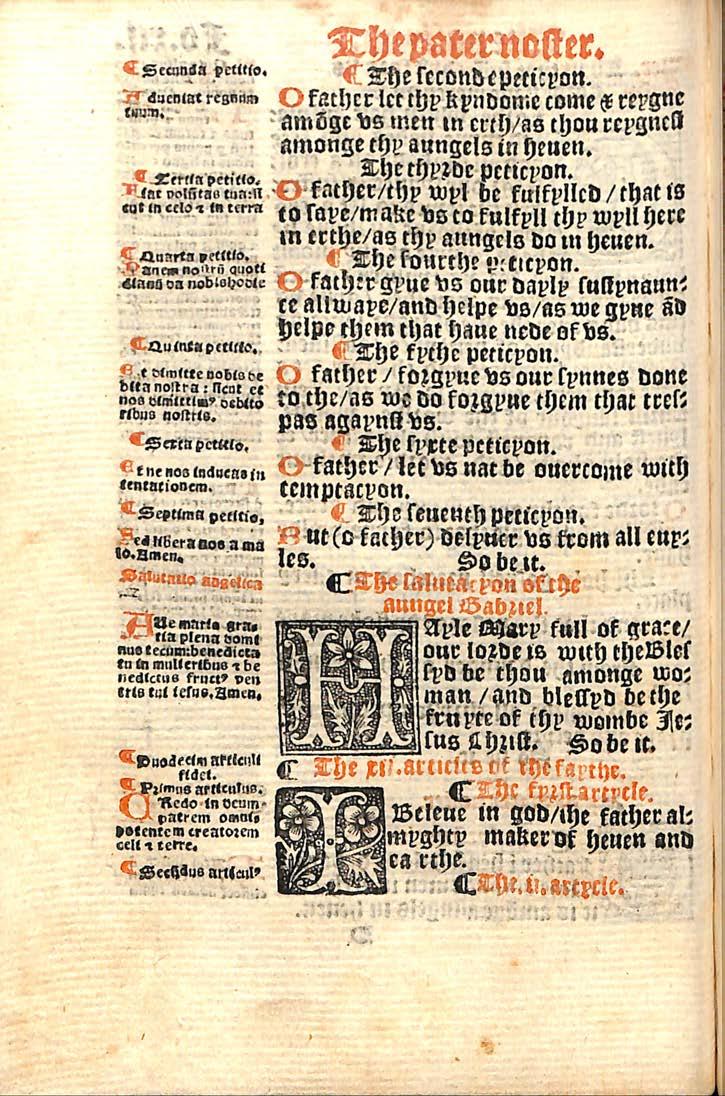 The pater noster.
¶ Secunda petitio.
Adueniat regnum
tuum.
¶ Tertia petitio.
Fiat volūtas tua: sicut in celo ⁊ in terra
¶ Quarta petitio.
Panem nostrū quoti
dianū da nobis hodie
¶ Quinta petitio.
Et dimitte nobis de
bita nostra : sicut et
nos dimittimꝰ debito
ribus nostris.
¶ Sexta petitio.
Et ne nos inducas in
tentationem.
¶ Septima petitio,
Sed libera nos a ma
lo. Amen.
Salutatio angelica
AUe maria gra-
tia plena domi
nus tecum: benedicta
tu in mulieribus ⁊ be
nedictus fructꝰ ven
tris tui iesus. Amen.
¶ Duodecim articuli
fidei.
¶ Primus articulus.
CRedo in deum
patrem omni-
potentem creatorem
celi ⁊ terre.
¶ Secūdus articulꝰ
¶ The second epeticyon.
O father let thy kyndome come & reygne
amōge vs men in erth/as thou reygnest
amonge thy aungels in heuen.
The thyrde peticyon.
O father/thy wyl be fulfylled / that is
to saye/make vs to fulfyll thy wyll here
in erthe/as thy aungels do in heuen.
¶ The fourthe peticyon.
O father gyue vs our dayly sustynaun-
ce allwaye/and helpe vs/as we gyue ād
helpe them that haue nede of vs.
¶ The fythe peticyon.
O father / forgyue vs our synnes done
to the/as we do forgyue them that tres-
pas agaynst vs.
¶ The syxte peticyon.
O father / let vs nat be ouercome with
temptacyon.
¶ The seuenth peticyon.
But (o father) delyuer vs from all euy-
les. So be it.
¶ The salutacyon of the
aungel Gabriel.
HAyle Mary full of grace/
our lorde is with the Bles
syd be thou amonge wo-
man / and blessyd be the
fruyte of thy wombe Je-
sus Christ. So be it.
¶ The xii. articles of the faythe.
¶ The fyrst artycle.
I Beleue in god/the father al-
myghty maker of heuen and
ea rthe.
¶ The. ii. artycle.